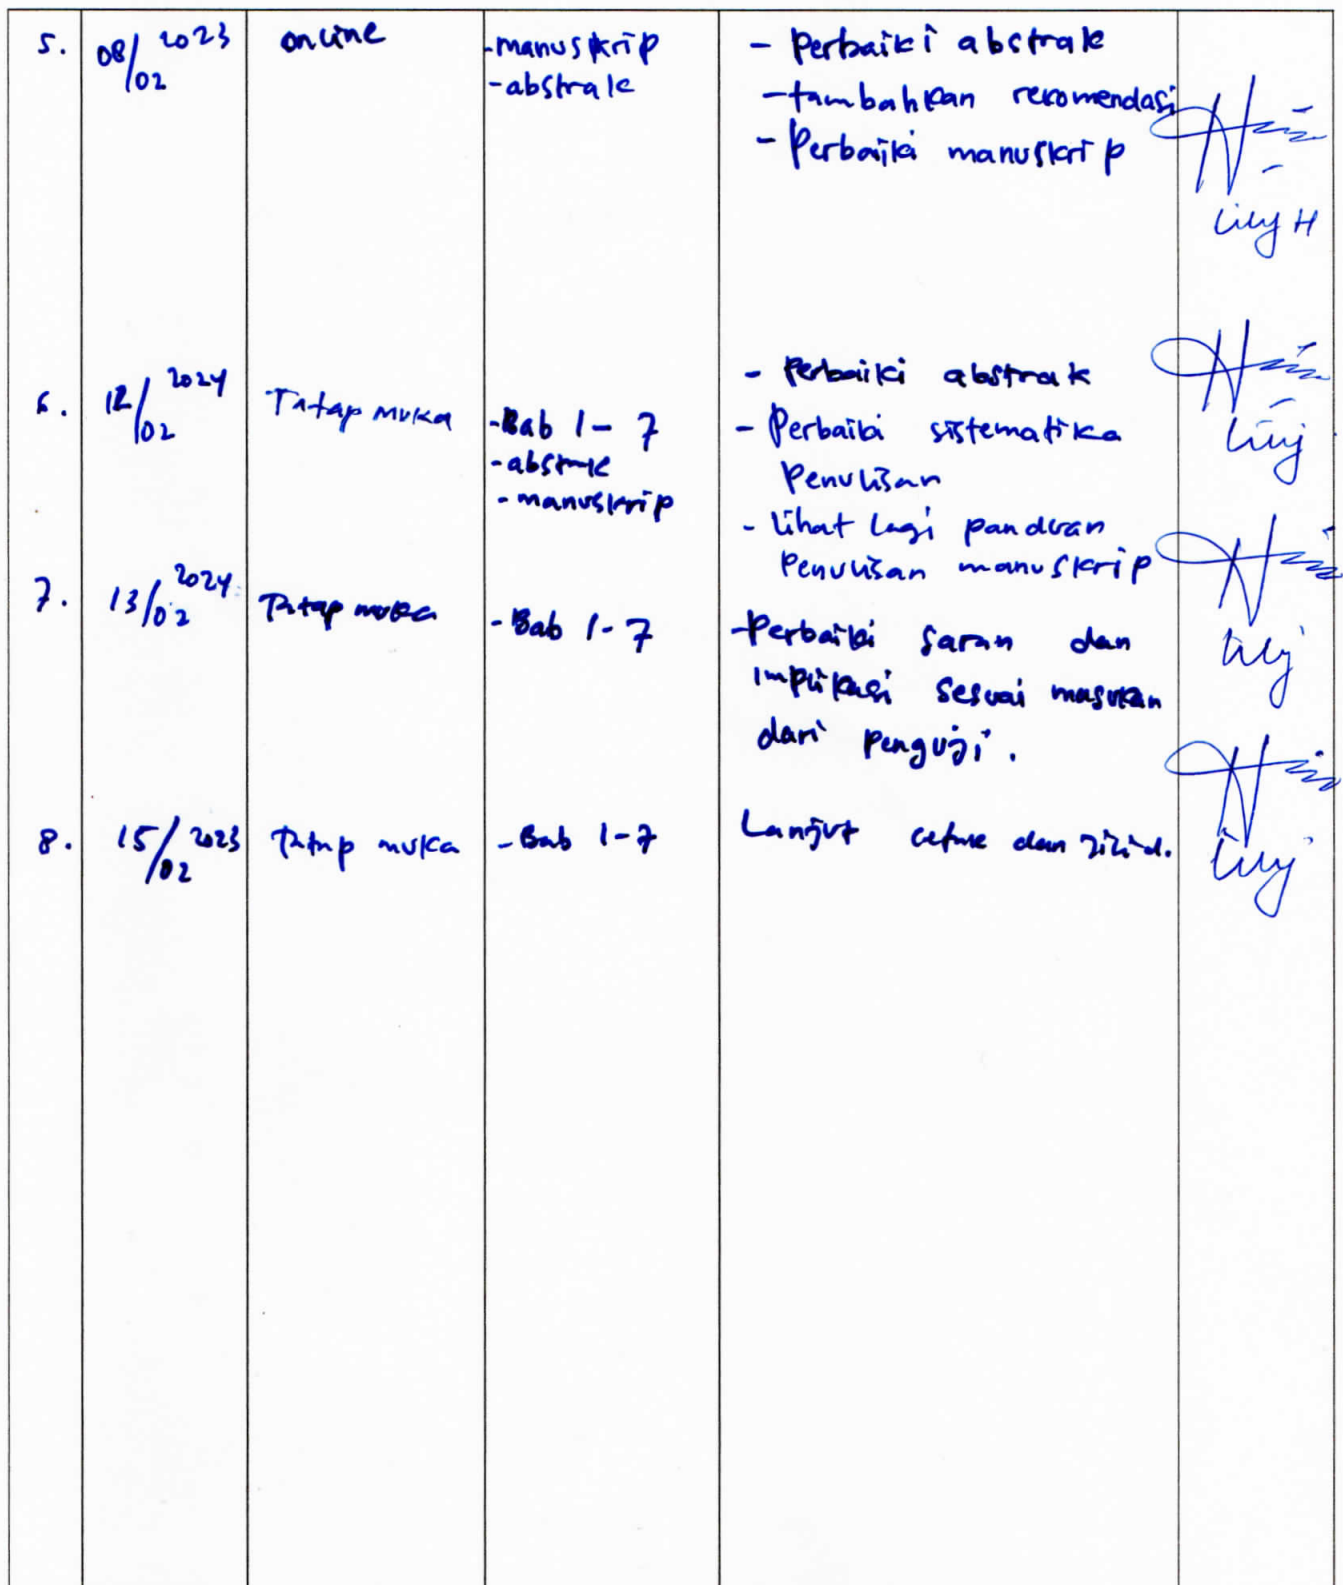 5. 08/02 2023 online -manuskrip - Perbaiki abstrak
-abstrak - tambahkan rekomendasi
- Perbaiki manuskrip
Lily H
6. 12/02 2024 Tatap muka -Bab 1-7 - Perbaiki abstrak
-abstrak - Perbaiki sistematika
-manuskrip Penulisan
Lily
- Lihat lagi panduan
Penulisan manuskrip
7. 13/02 2024 Tatap muka -Bab 1-7 -Perbaiki saran dan
implikasi sesuai masukan
dari penguji.
Lily
8. 15/02 2023 Tatap muka -Bab 1-7 Lanjut cetak dan jilid.
Lily